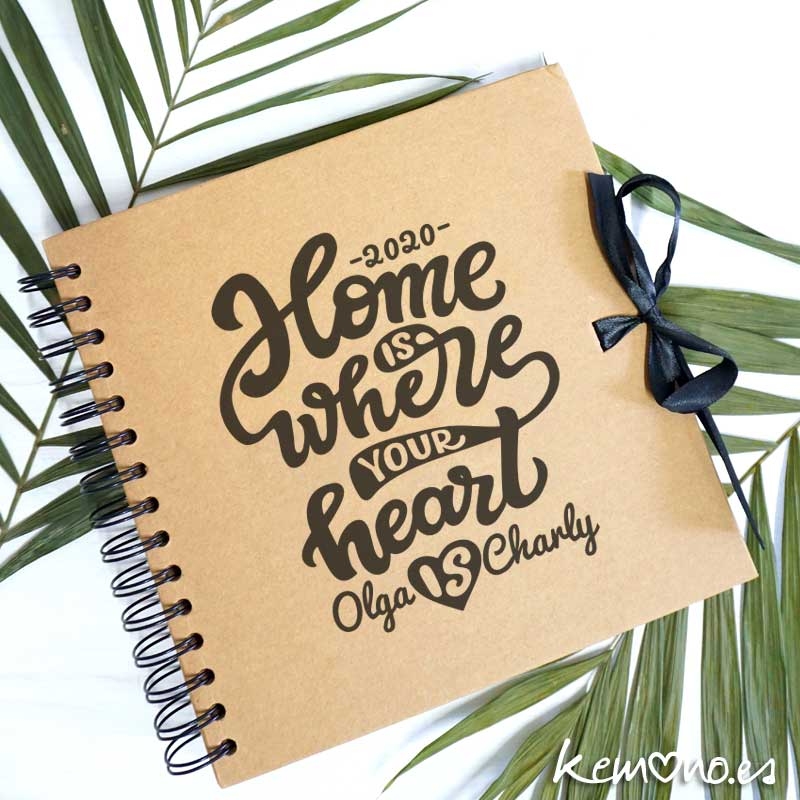 -2020-
Home
IS
where
YOUR
heart
Olga IS Charly
kemono.es